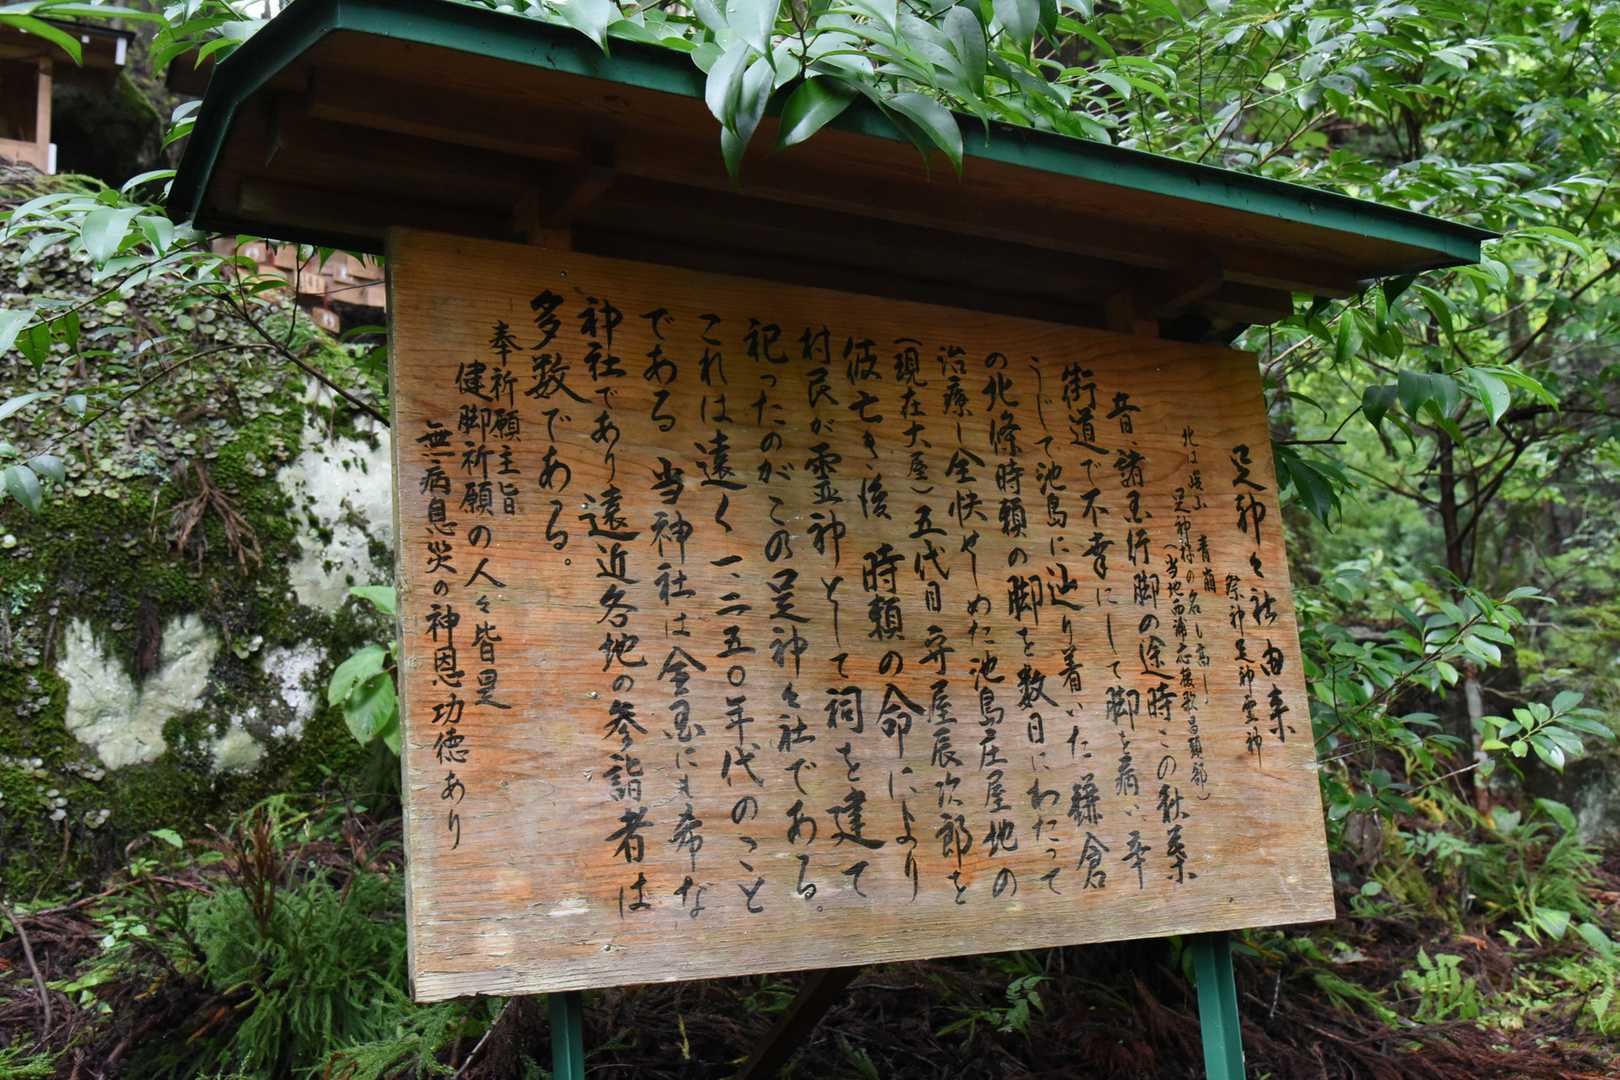 足神々社由来
祭神足神霊神
北は嶮山 青崩
足神様の名も高し
(当地西浦念仏歌音頭部)
昔、諸国行脚の途時この秋葉
街道で不幸にして脚を病い辛
うじて池島に辿り着いた鎌倉
の北條時頼の脚を数日にわたって
治療し全快せしめた池島庄屋地の
(現在大屋)五代目守屋辰次郎を
彼亡き後 時頼の命により
村民が霊神として祠を建て
祀ったのがこの足神々社である。
これは遠く一二五〇年代のこと
である 当神社は全国にも希な
神社であり遠近各地の参詣者は
多数である。
奉祈願主旨
健脚祈願の人々皆是
無病息災の神恩功徳あり